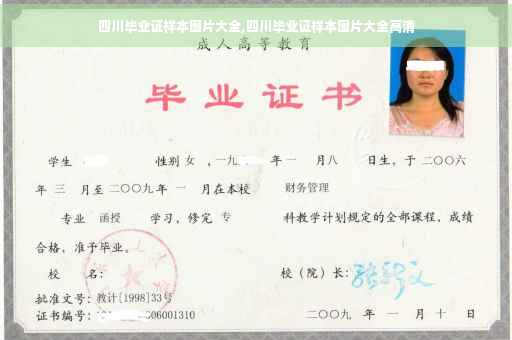 四川毕业证样本图片大全,四川毕业证样本图片大全高清
成人高等教育
毕业证书
学生 性别 女 ，一九 年 一 月 八 日生，于 二〇〇六
年 三 月至 二〇〇九 年 一 月在本校 财务管理
专业 函授 学习，修完 专 科教学计划规定的全部课程，成绩
合格，准予毕业。
校 名： 校（院）长：
批准文号：教计[1998]33号
证书编号： 006001310 二〇〇九 年 一 月 十 日